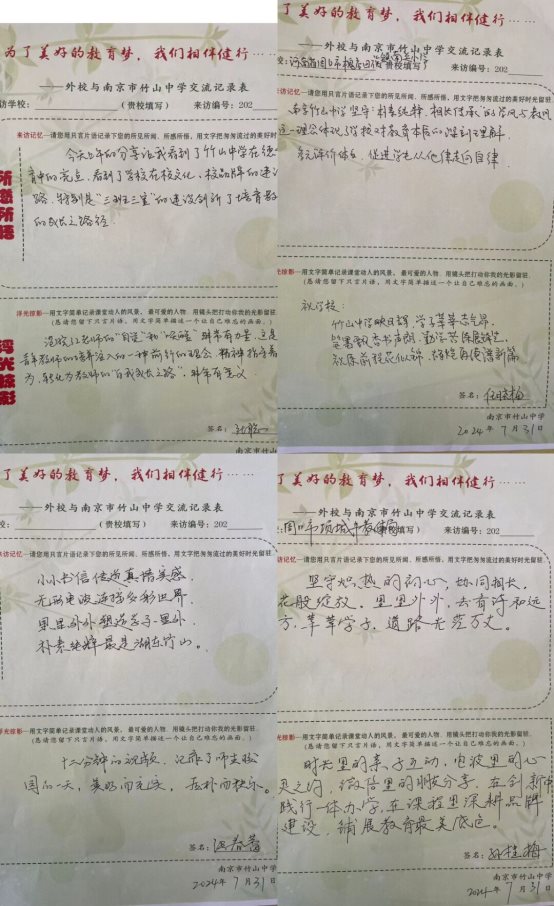 为了美好的教育梦，我们相伴健行……
——外校与南京市竹山中学交流记录表
访学校：（贵校填写） 来访编号：202
来访记忆—请您用只言片语记录下您的所见所闻、所感所悟，用文字把匆匆流过的美好时
所感所悟
今天上午的分享让我看到了竹山中学在德
育中的亮点，看到了学校在校文化、校品牌的建设
路，特别是“三班三室”的建设创新了培育教
的成长之路径。
浮光掠影—用文字简单记录课堂动人的风景、最可爱的人物、用镜头把打动你我的光影留驻
（恳请您留下只言片语，用文字简单描述一个让自己难忘的画面。）
浮光掠影
老师的“自觉”和“唤醒”非常有力量，这是
青年教师的培养注入的一种前行的理念，精神指引着
为，转化为教师的“自我成长之路”，非常有意义
签名：
南京市竹山中
了美好的教育梦，我们相伴健行……
——外校与南京市竹山中学交流记录表
校：（贵校填写） 来访编号：202
来访记忆—请您用只言片语记录下您的所见所闻、所感所悟，用文字把匆匆流过的美好时光留驻
南京竹山中学坚守“朴素纯粹、相长传承”的学风与教风
这一理念体现了学校对教育本质的深刻理解
多元评价体系，促进学生从他律走向自律
光掠影—用文字简单记录课堂动人的风景、最可爱的人物、用镜头把打动你我的光影留驻.
（恳请您留下只言片语，用文字简单描述一个让自己难忘的画面。）
祝学校：
竹山中学映日辉，学子莘莘志气昂
笔墨飘香书声朗，
祝愿前程花似锦，谱新篇
签名：任晓梅
南京市竹山中学
2024年7月31日
了美好的教育梦，我们相伴健行……
——外校与南京市竹山中学交流记录表
校：（贵校填写） 来访编号：202
访记忆—请您用只言片语记录下您的所见所闻、所感所悟，用文字把匆匆流过的美好时光留驻
小小书信传递真情实感，
无形电波连接多彩世界，
果里外外塑造孩子里外，
朴素纯粹最是湖东竹山。
浮光掠影—用文字简单记录课堂动人的风景、最可爱的人物、用镜头把打动你我的光影留驻.
（恳请您留下只言片语，用文字简单描述一个让自己难忘的画面。）
十二分钟的视频，记录了师生校
园的一天，美好而充实，质朴而快乐。
签名：
南京市竹山中学
2024年7月31日
了美好的教育梦，我们相伴健行……
——外校与南京市竹山中学交流记录表
校：周口市项城市教体局（贵校填写） 来访编号：202
访记忆—请您用只言片语记录下您的所见所闻、所感所悟，用文字把匆匆流过的美好时光留驻
坚守炽热的初心，协同相长，
花般绽放。里里外外，去有诗和远
方，莘莘学子，道路光芒万丈。
光掠影—用文字简单记录课堂动人的风景、最可爱的人物、用镜头把打动你我的光影留驻.
（恳请您留下只言片语，用文字简单描述一个让自己难忘的画面。）
时光里的亲子互动，电波里的心
灵之约，微信里的分享，在创新中
践行一体办学，在课程里深耕品牌
建设，铺展教育最美底色。
签名：孙桂梅
南京市竹山中学
2024年7月31日